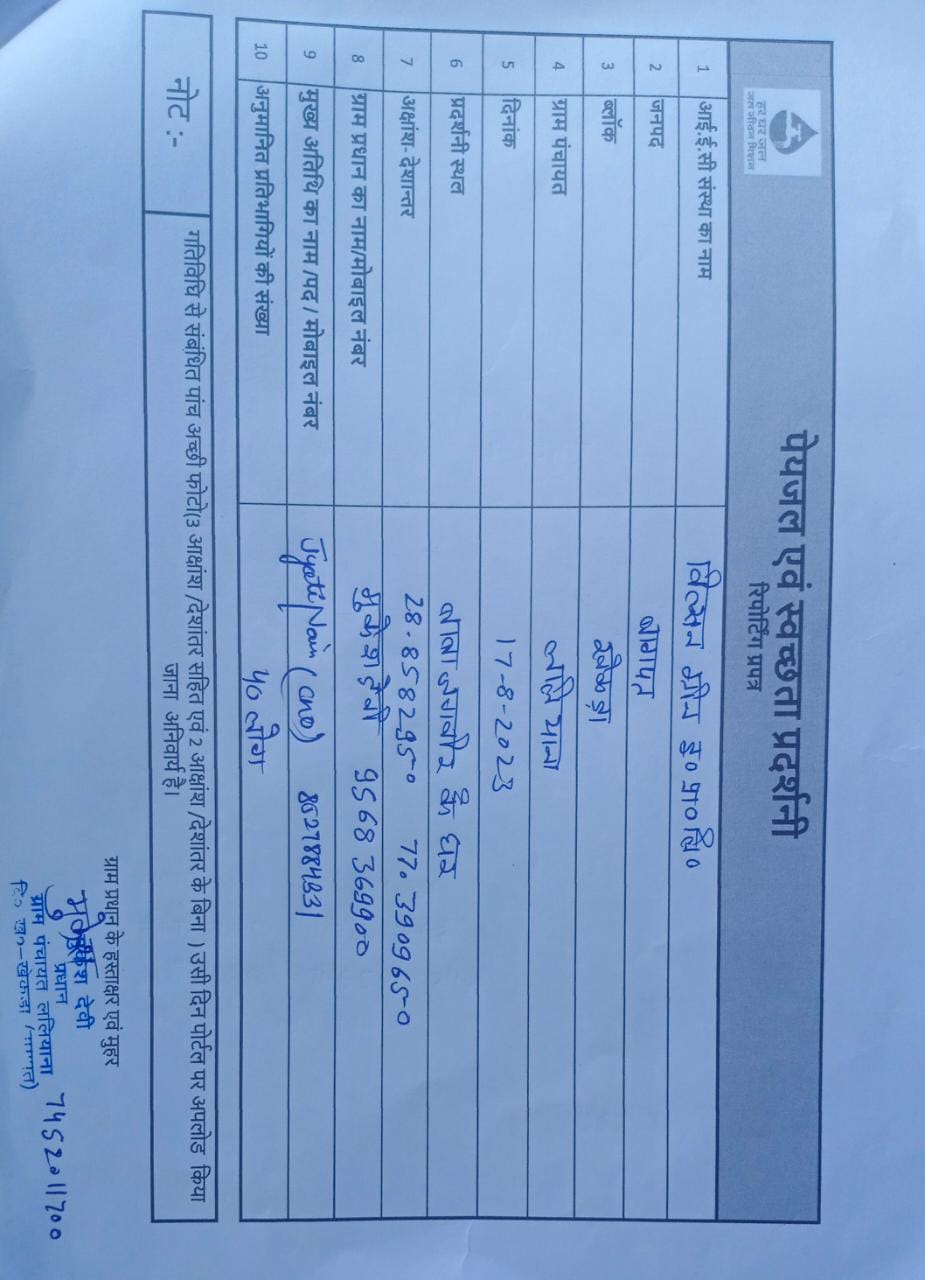 हर घर जल
जल जीवन मिशन
पेयजल एवं स्वच्छता प्रदर्शनी
रिपोर्टिंग प्रपत्र
1 आई.ई.सी संस्था का नाम
2 जनपद बागपत
3 ब्लॉक खेकड़ा
4 ग्राम पंचायत ललियाना
5 दिनांक 17-8-2023
6 प्रदर्शनी स्थल के घर
7 अक्षांश- देशान्तर 28.8582950 77.3909650
8 ग्राम प्रधान का नाम/मोबाइल नंबर मुकेश देवी 9568369900
9 मुख्य अतिथि का नाम /पद / मोबाइल नंबर Jyoti Nain
10 अनुमानित प्रतिभागियों की संख्या 40 लोग
नोट :- गतिविधि से संबंधित पांच अच्छी फोटो(3 आक्षांश /देशांतर सहित एवं 2 आक्षांश /देशांतर के बिना ) उसी दिन पोर्टल पर अपलोड किया
जाना अनिवार्य है।
ग्राम प्रधान के हस्ताक्षर एवं मुहर
देवी
प्रधान
ग्राम पंचायत ललियाना 7452011700
वि० ख०-खेकडा